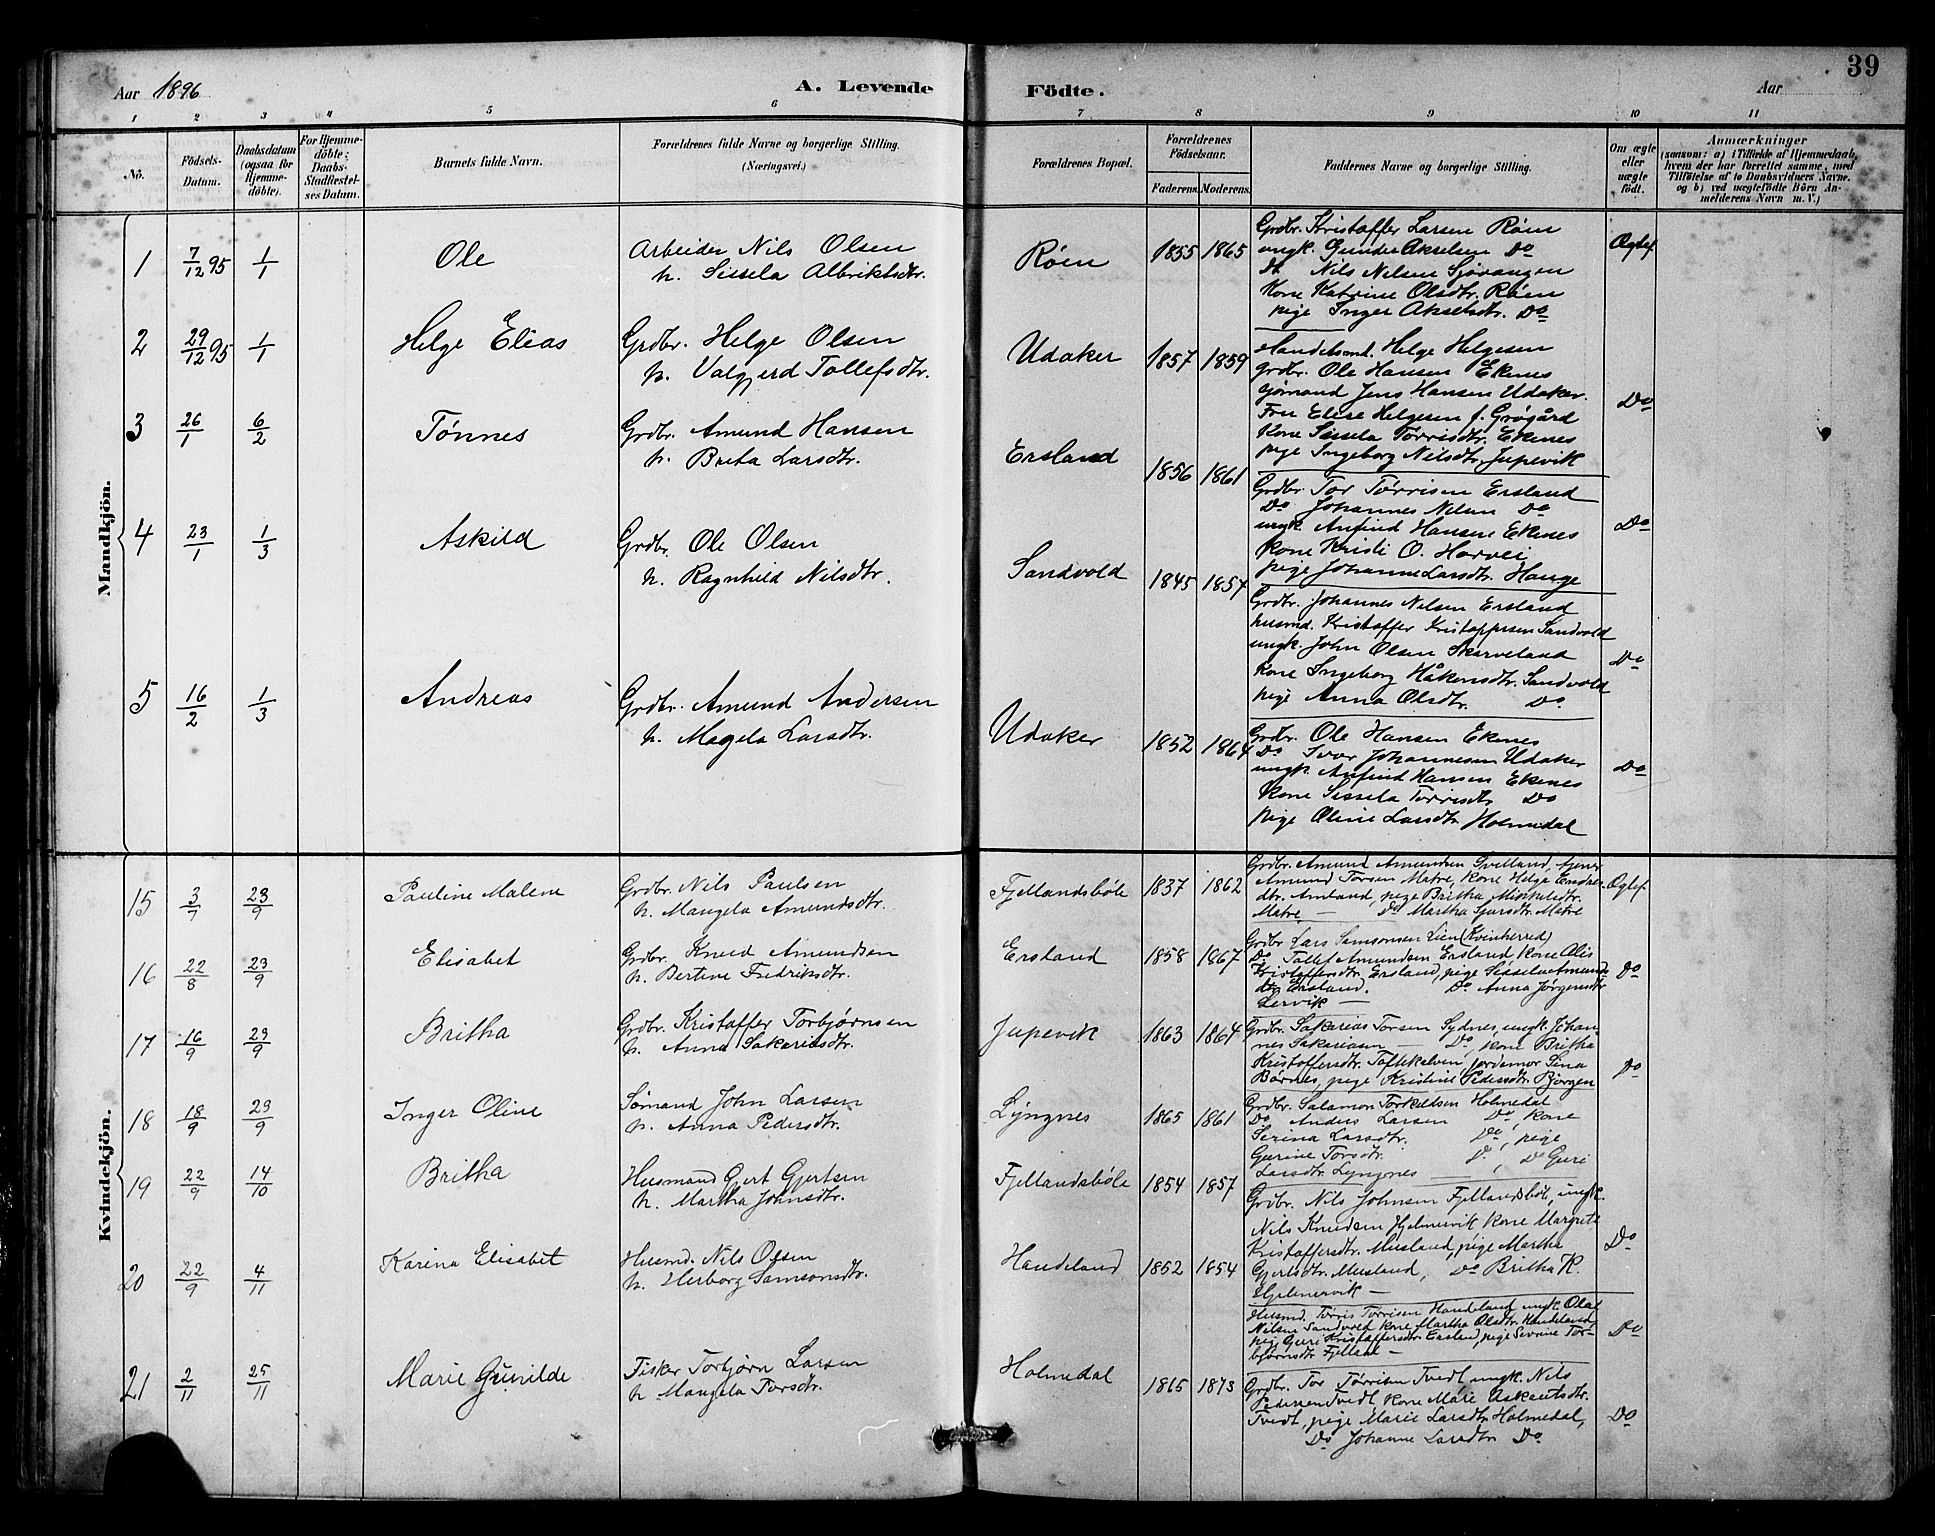 39
Aar 1896
A. Levende
Födte.
Aar
1 2 3 4 5 6 7 8 9 10 11
No.
Födsels-Datum.
Daabsdatum (ogsaa for Hjemme-döbte).
For Hjemme-döbte; Daabs-Stadfæstel-ses Datum.
Barnets fulde Navn.
Forældrenes fulde Navne og borgerlige Stilling. (Næringsvei.)
Forældrenes Bopæl.
Forældrenes Födselsaar.
Faderens. Moderens.
Faddernes Navne og borgerlige Stilling.
Om ægte eller uægte födt.
Anmærkninger
(saasom: a) i Tilfælde af Hjemmedaab, hvem der har forrettet samme, med Tilföielse af to Daabsvidners Navne, og b) ved uægtefödte Börn An-melderens Navn m. V.)
Mandkjön.
1 7/12 95 1/1 Ole
Arbeider Nils Olsen
h. Sissela Albriktsdtr.
Røen 1855 1865
Grdbr. Kristaffer Larsen Røen
ungk. Gunder Akselsen Do
Do Nils Nelsen Sjovangen
Kone Katrine Olsdtr. Røen
pige Inger Akselsdtr. Do
Ægtef.
2 29/12 95 1/1 Helge Elias
Grdbr. Helge Olsen
h. Valgjerd Tollefsdtr.
Udaker 1857 1859
Handelsmd. Helge Helgesen
Grdbr. Ole Hansen Ekenes
sjømand Jens Hansen Udaker.
Fru Elise Helgesen f. Grøgård
Kone Sissela Tørrisdtr. Ekenes
pige Ingeborg Nilsdtr. Jupevik
Do
3 26/1 6/2 Tønnes
Grdbr. Amund Hansen
h. Brita Larsdtr.
Ersland 1856 1861
Grdbr. Tor Tørrisen Ersland
Do Johannes Nelsen Do
ungk. Anfind Hansen Ekenes
Kone Kristi O. Horvei
pige Johanne Larsdtr. Hauge
Do
4 23/1 1/3 Askild
Grdbr. Ole Olsen
h. Ragnhild Nilsdtr.
Sandvold 1845 1857
Grdbr. Johannes Nilsen Ersland
husmd. Kristaffer Kristaffersen Sandvold
ungk. John Olsen Skarveland
Kone Ingeborg Håkensdtr. Sandvold
pige Anna Olsdtr. Do
Do
5 16/2 1/3 Andreas
Grdbr. Amund Andersen
h. Magela Larsdtr.
Udaker 1852 1864
Grdbr. Ole Hansen Ekenes
Do Ivar Johannesen Udaker
ungk. Anfind Hansen Ekenes
Kone Sissela Tørrisdtr Do
pige Oline Larsdtr. Holmedal
Do
Kvindekjön.
15 3/7 23/9 Pauline Malene
Grdbr. Nils Paulsen
h. Mangela Amundsdtr.
Fjellandsbøle 1837 1862
Grdbr. Amund Amundsen Svelland, tjener
Amund Torsen Matre, Kone Helga
dtr. Amland, pige Britha Mikkelsdtr.
Matre, — Do Martha Matre
Ægtef.
16 22/8 23/9 Elisabet
Grdbr. Knud Amundsen
h. Bertine Fredriksdtr.
Ersland 1858 1867
Grdbr. Lars Samsonsen Lien (Kvinherred)
Do Tallef Amundsen Ersland, Kone Alis
Kristaffersdtr. Ersland, pige Sissela Amunds
dtr Ersland. Do Anna Jørgensdtr
Lervik —
Do
17 16/9 23/9 Britha
Grdbr. Kristaffer Torbjørnsen
h. Anna Sakariasdtr.
Jupevik 1863 1864
Grdbr. Sakarias Torsen Sydnes, ungk. Johan-
nes Sakariasen — Do, Kone Britha
Kristaffersdtr. Toftekalven, jordemor Sina
Børnes, pige Kristine Pedersdtr. Bjørgen
Do
18 18/9 23/9 Inger Oline
Sømand John Larsen
h. Anna Pedersdtr.
Lyngnes 1865 1861
Grdbr. Salamon Torkeldsen Holmedal
Do Anders Larsen Do, Kone
Serina Larsdtr. Do, pige
Gurine Torsdtr. Do, Do Guri
Larsdtr. Lyngnes —
19 22/9 14/10 Britha
Husmand Gjert Gjertsen
h. Martha Johnsdtr.
Fjellandsbøle 1854 1857
Grdbr. Nils Johnsen Fjellandsbøle, ungk.
Nils Knudsen Hjelmervik Kone Margrete
Kristaffersdtr. Musland, pige Martha
Gjertsdtr. Musland, Do Britha K.
Hjelmervik —
Do
20 22/9 4/11 Karina Elisabet
Husmd. Nils Olsen
h. Herborg Samsonsdtr.
Handeland 1852 1854
Husmd. Tørris Tørrisen Handeland ungk. Olai
Nilsen Sandvold Kone Martha Olsdtr. Handeland,
pig. Guri Kristaffersdtr. Ersland, pige Severine Tor-
bjørnsdtr. —
Do
21 2/11 25/11 Marie Gunilde
Fisker Torbjørn Larsen
h. Mangela Torsdtr.
Holmedal 1865 1873
Grdbr. Tor Tørrisen Tvedt, ungk. Nils
Pedersen Tvedt Kone Mari
Tvedt, pige Marie Larsdtr. Holmedal,
Do Johanne Larsdtr Do
Do